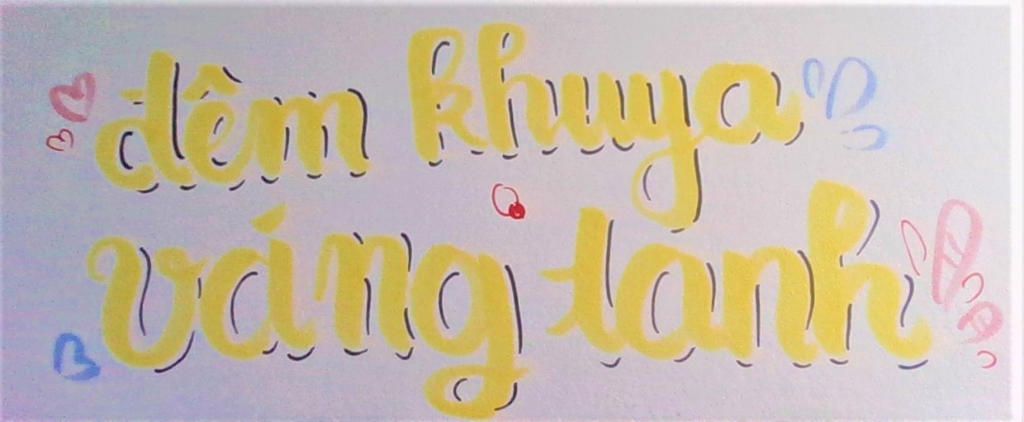 đêm khuya
váng tanh